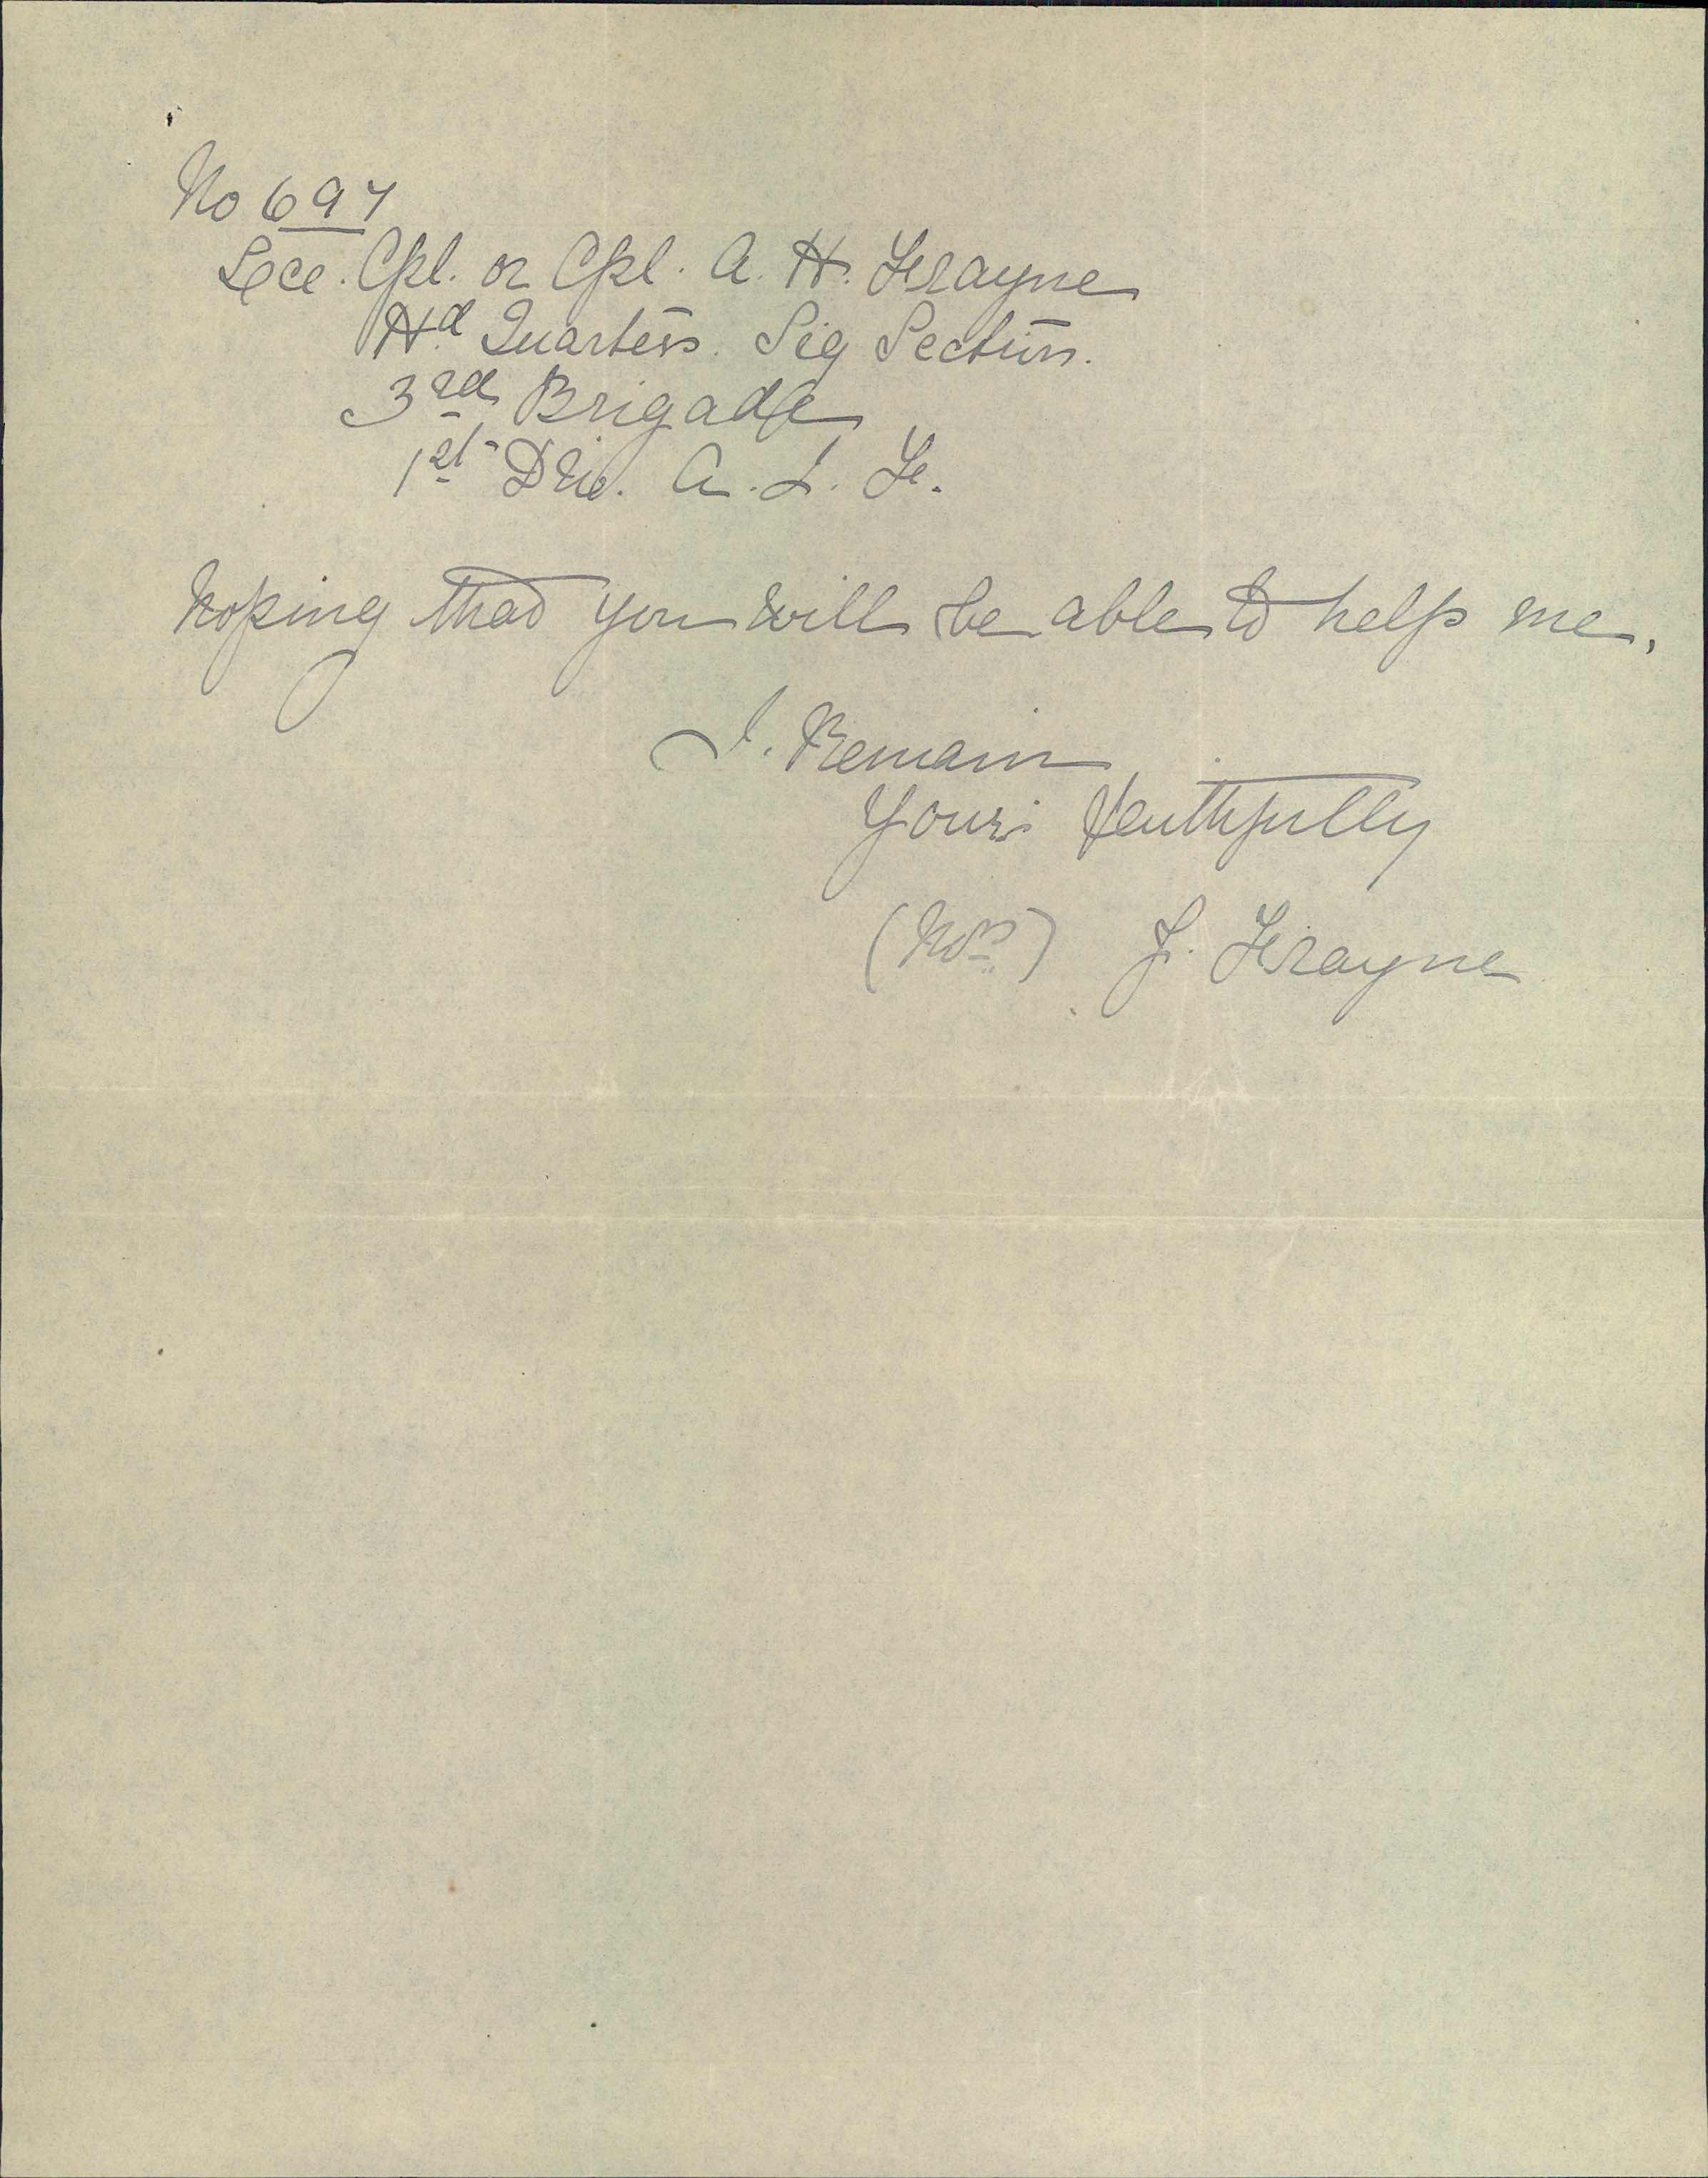 No 697
Lce. Cpl. or Cpl. A. H. Frayne
Hd Quarters. Sig Section.
3rd Brigade
1st Div. A. I. F.
Hoping that you will be able to help me,
I. Remain
Yours Faithfully
(Mrs) F. Frayne